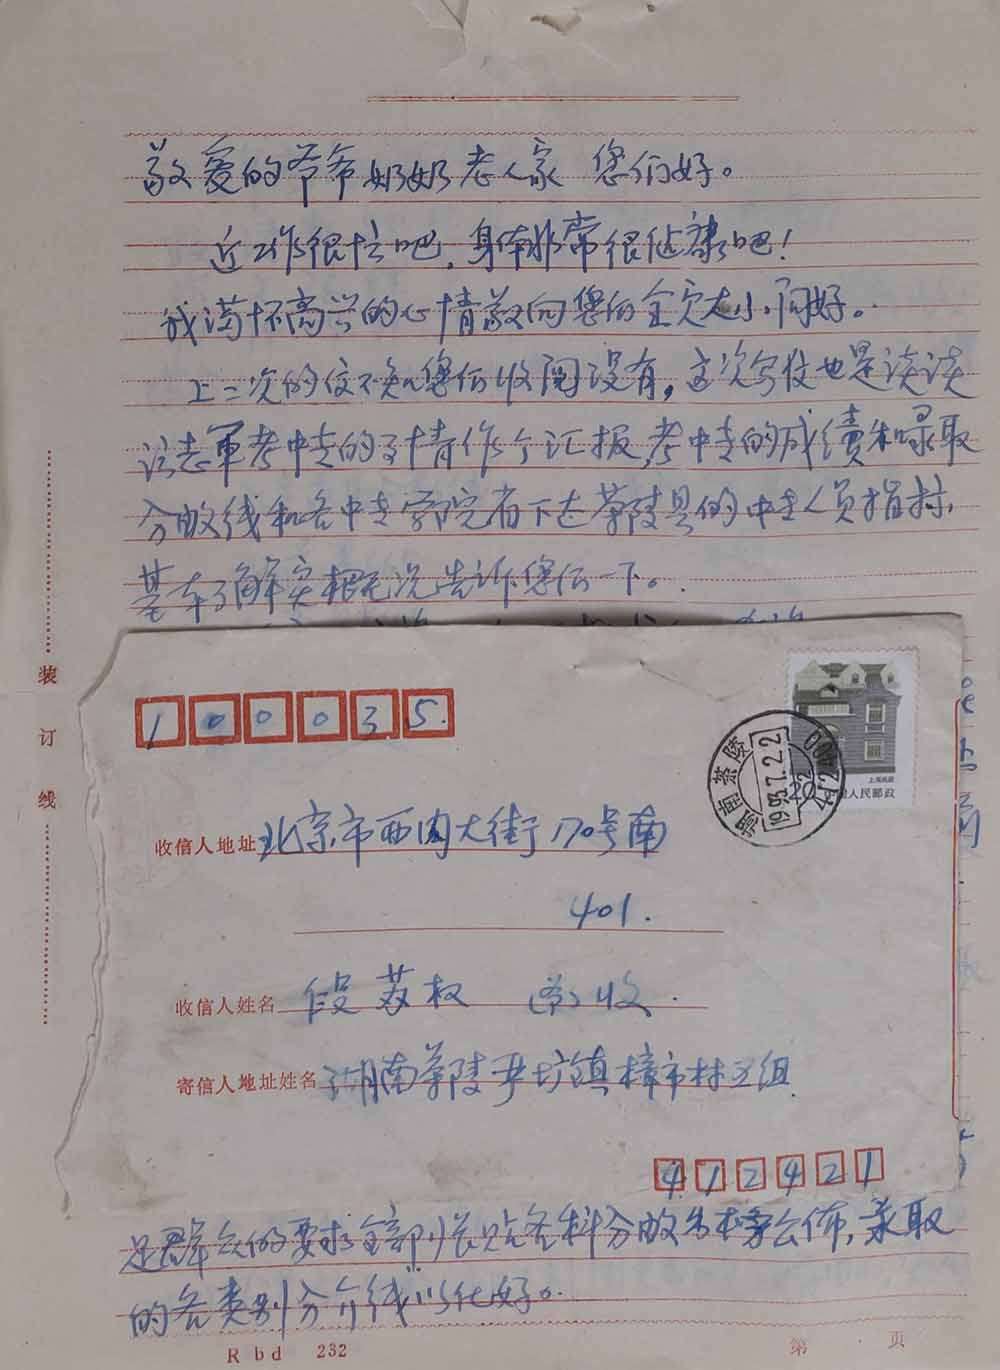 敬爱的爷爷奶奶老人家 您们好。
近工作很忙吧，身体非常很健康吧！
我满怀高兴的心情敬向您们全家大小同好。
上二次的信不知您们收阅没有，这次写校也是谈谈
让志軍考中专的事情作个汇报，考中专的成绩和录取
分数线和各中专学院省下达茶陵县的中专人员指标，
基本了解实相况告诉您们一下。
装
订
线
100035
上海民居
20 中国人民邮政
湖南茶陵
1993.7.22
收信人地址 北京市西内大街170号南
401.
收信人姓名 段苏权 爷 收.
寄信人地址姓名 湖南茶陵 坊镇樟市村五组
412421
足群众的要求全部张贴各科分数 公佈，录取
的各类别分 线 好。
Rbd 232
第 页